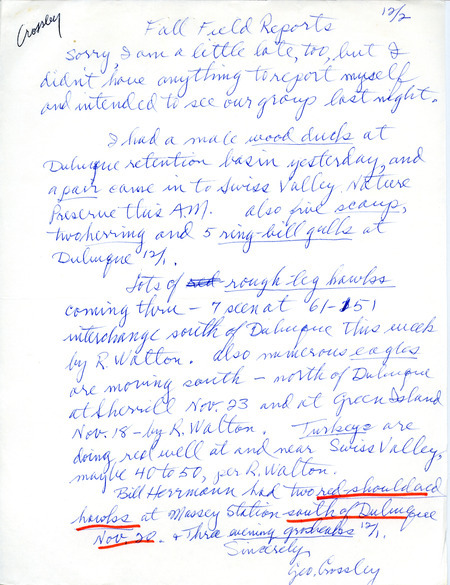 Crossley
12/2
Fall Field Reports
Sorry, I am a little late, too, but I
didn't have anything to report myself
and intended to see our group last night.
I had a male wood duck at
Dubuque retention basin yesterday, and
a pair came in to Swiss Valley Nature
Preserve this A.M. also five scaup,
two herring and 5 ring-bill gulls at
Dubuque 12/1.
Lots of red rough-leg hawks
coming thru - 7 seen at 61-151
interchange south of Dubuque this week
by R. Walton. also numerous eagles
are moving south - north of Dubuque
at Sherrill Nov. 23 and at Green Island
Nov. 18 - by R. Walton. Turkeys are
doing real well at and near Swiss Valley,
maybe 40 to 50, per R. Walton.
Bill Herrmann had two red-shouldered
hawks at Massey Station south of Dubuque
Nov. 20. + Three evening grosbeaks 12/1.
Sincerely,
Geo. Crossley